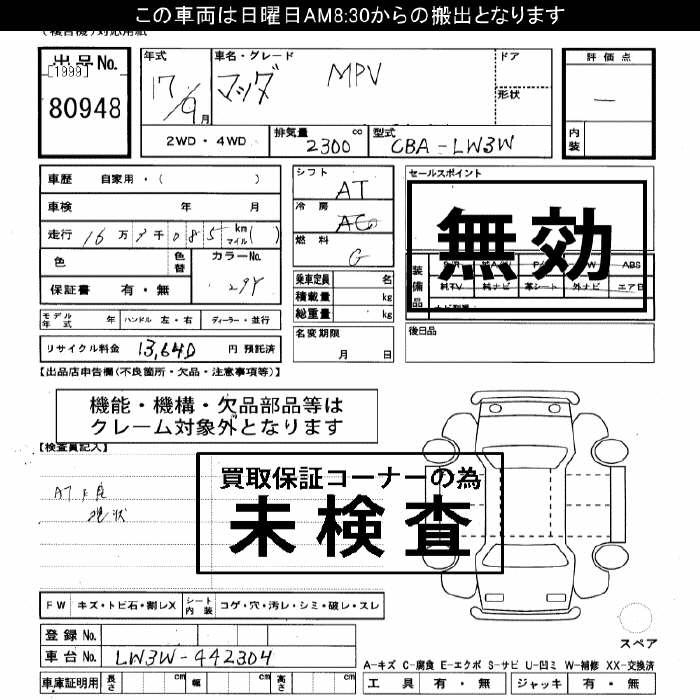 この車両は日曜日AM8:30からの搬出となります
出品No.
[1999]
80948
年式
17/9月
車名・グレード
マツダ MPV
ドア
形状
評価点
—
内装
2WD・4WD
排気量 2300 cc
型式 CBA-LW3W
車歴 自家用・( )
車検 年 月
走行 16万 7千 085 km マイル( )
色
色替
カラーNo. 29Y
保証書 有・無
モデル年式 年 ハンドル 左・右 ディーラー・並行
リサイクル料金 13,640 円 預託済
シフト AT
冷房 AC
燃料 G
乗車定員 名
積載量 kg
総重量 kg
名変期限
月 日
セールスポイント
無効
装備品 S/R W ABS
純TV 純ナビ 革シート 外ナビ エアB
後日品
【出品店申告欄(不良箇所・欠品・注意事項等)】
機能・機構・欠品部品等は
クレーム対象外となります
【検査員記入】
買取保証コーナーの為
未検査
AT不良
現状
FW キズ・トビ石・割レX シート内装 コゲ・穴・汚レ・シミ・破レ・スレ
登録No.
車台No. LW3W-442304
車庫証明用 長さ cm 幅 cm 高さ cm
スペア
A-キズ C-腐食 E-エクボ S-サビ U-凹ミ W-補修 XX-交換済
工具 有・無 ジャッキ 有・無